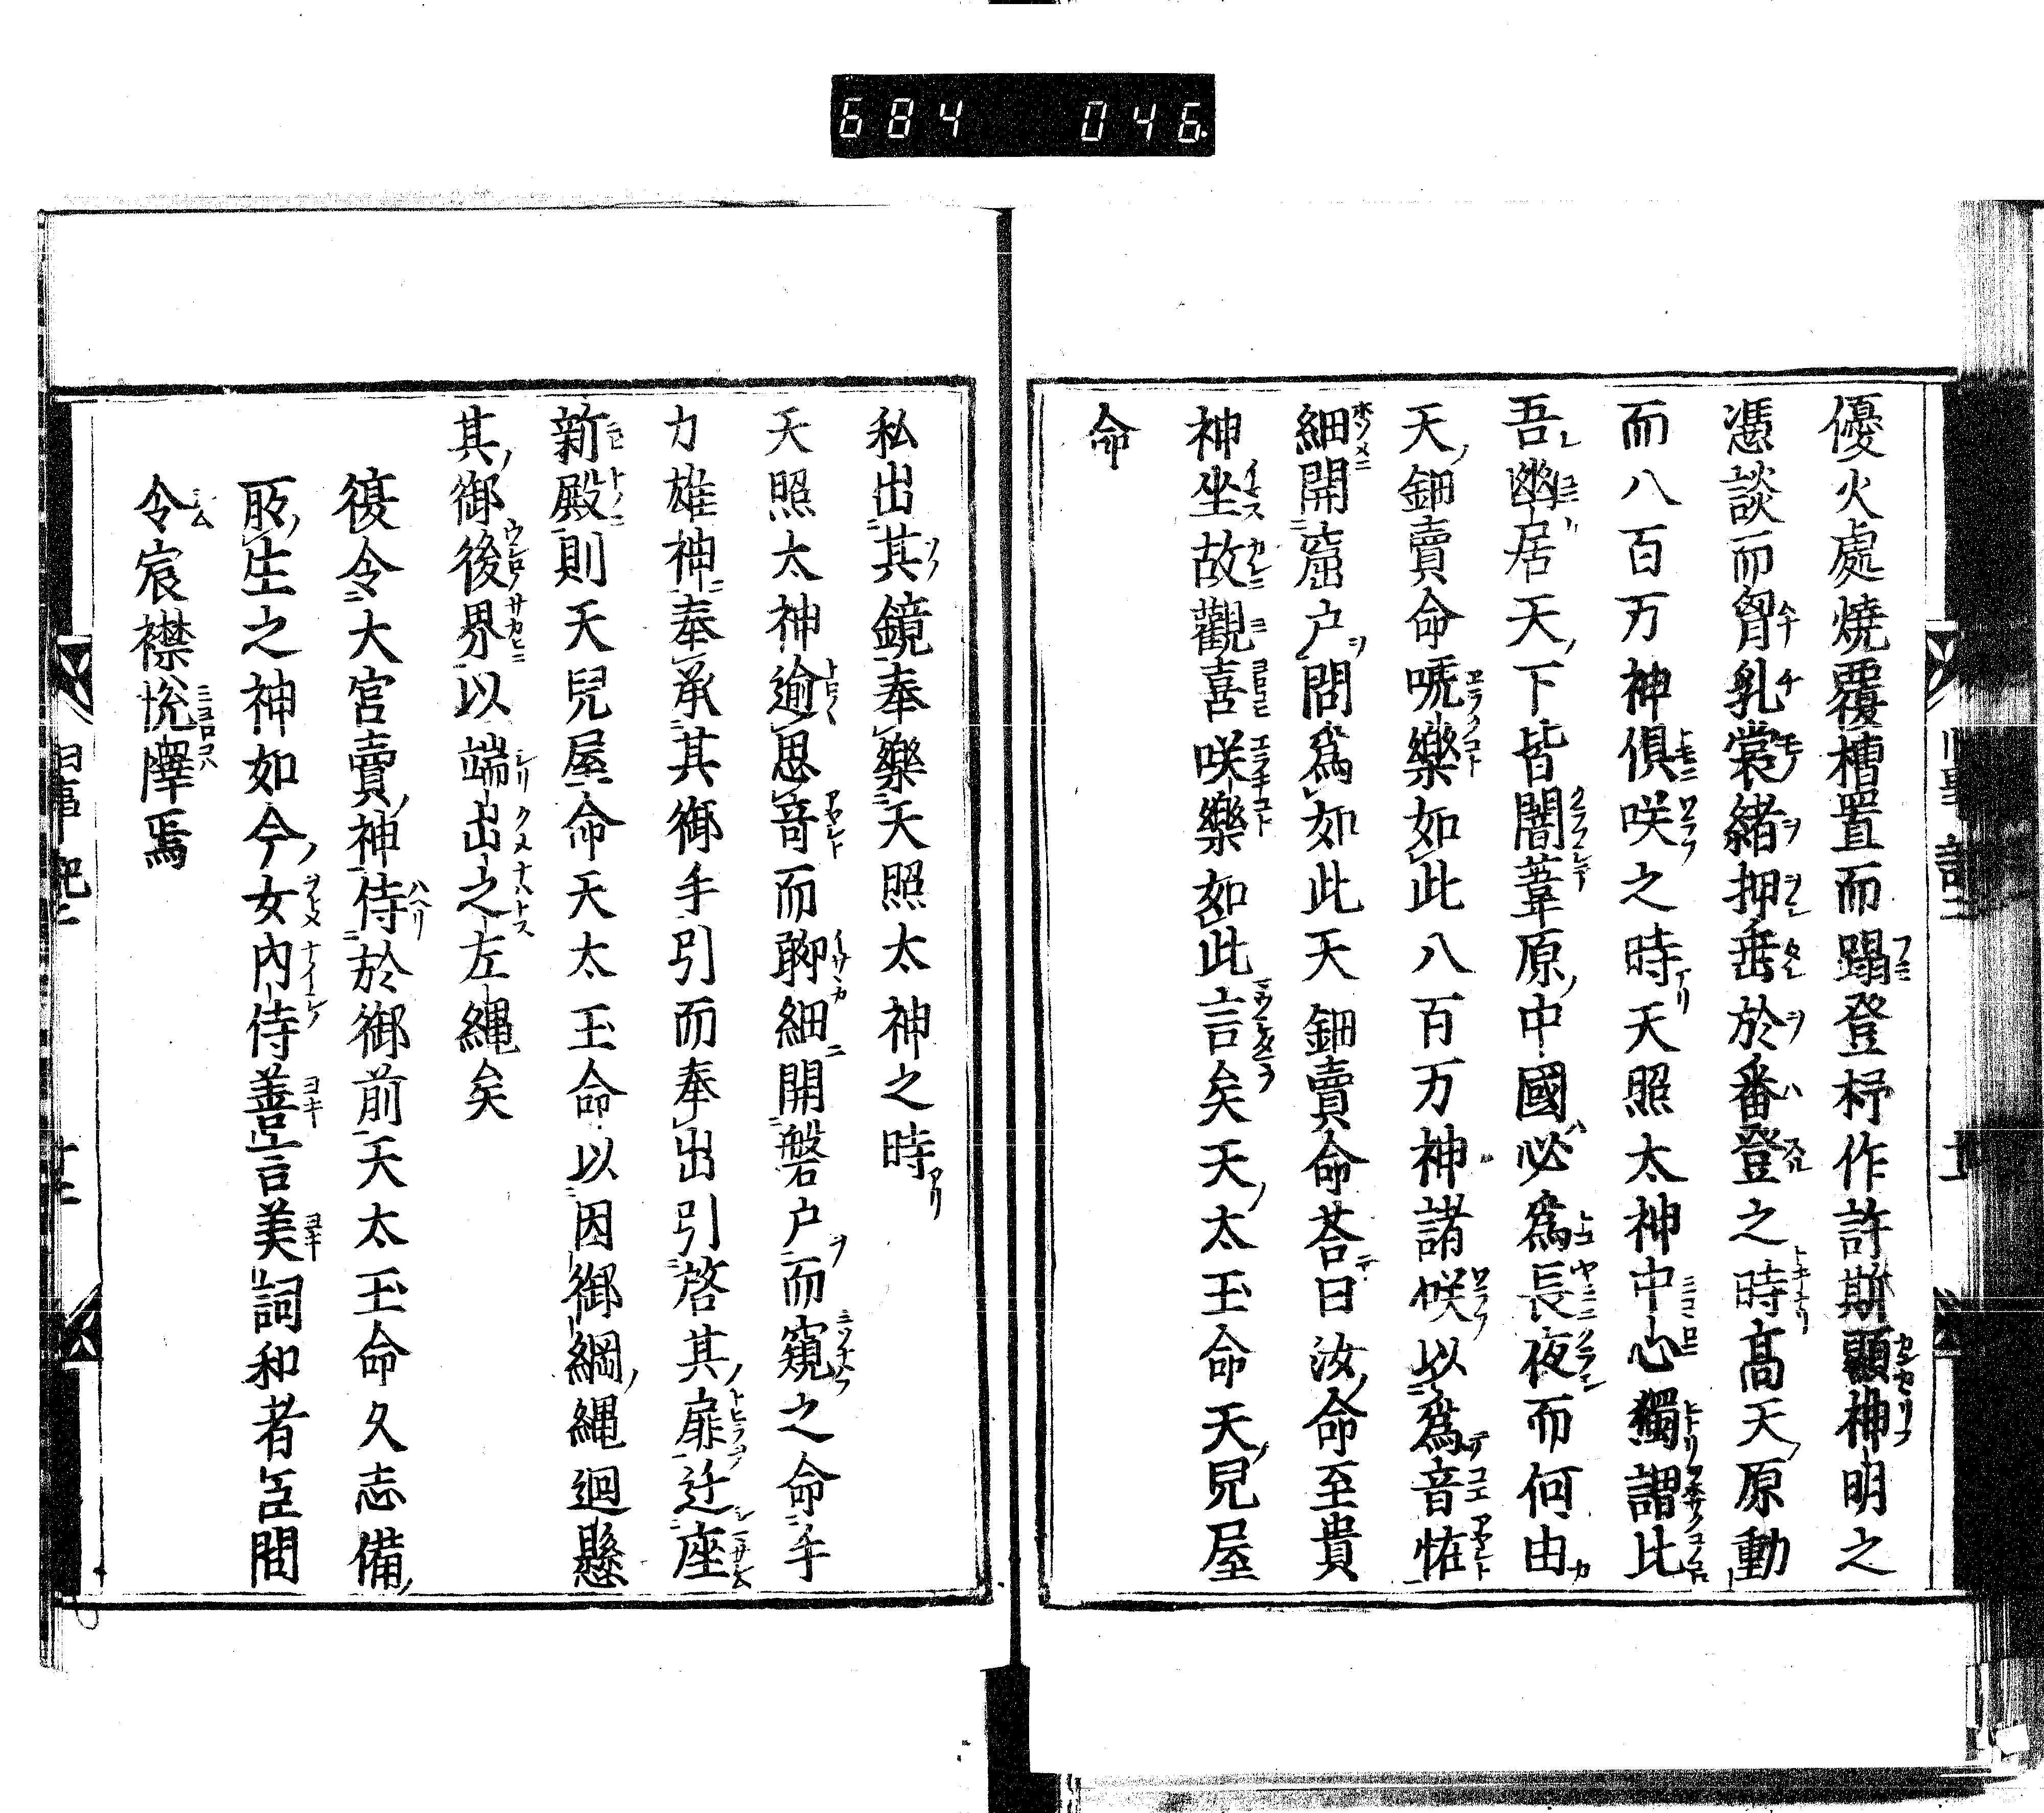 684 046
優火處燒覆槽置而蹋登杼作許斯顯神明之
憑談而胷乳裳緒押垂於番登之時髙天原動
而八百万神俱咲之時天照太神中心獨謂比
吾幽居天下皆闇葦原中國必爲長夜而何由
天鈿賣命㖸樂如此八百万神諸咲以爲音恠
細開窟户問爲如此天鈿賣命荅曰汝命至貴
神坐故觀喜咲樂如此言矣天太玉命天兒屋
命
私出其鏡奉樂天照太神之時
天照太神逾思竒而聊細開磐户而窺之命手
力雄神奉承其御手引而奉出引啓其扉迁座
新殿則天兒屋命天太玉命以因御綱縄迴懸
其御後界以端出之左縄矣
復令大宮賣神侍於御前天太玉命久志備
所生之神如今女內侍善言美詞和者臣間
令宸襟悦懌焉